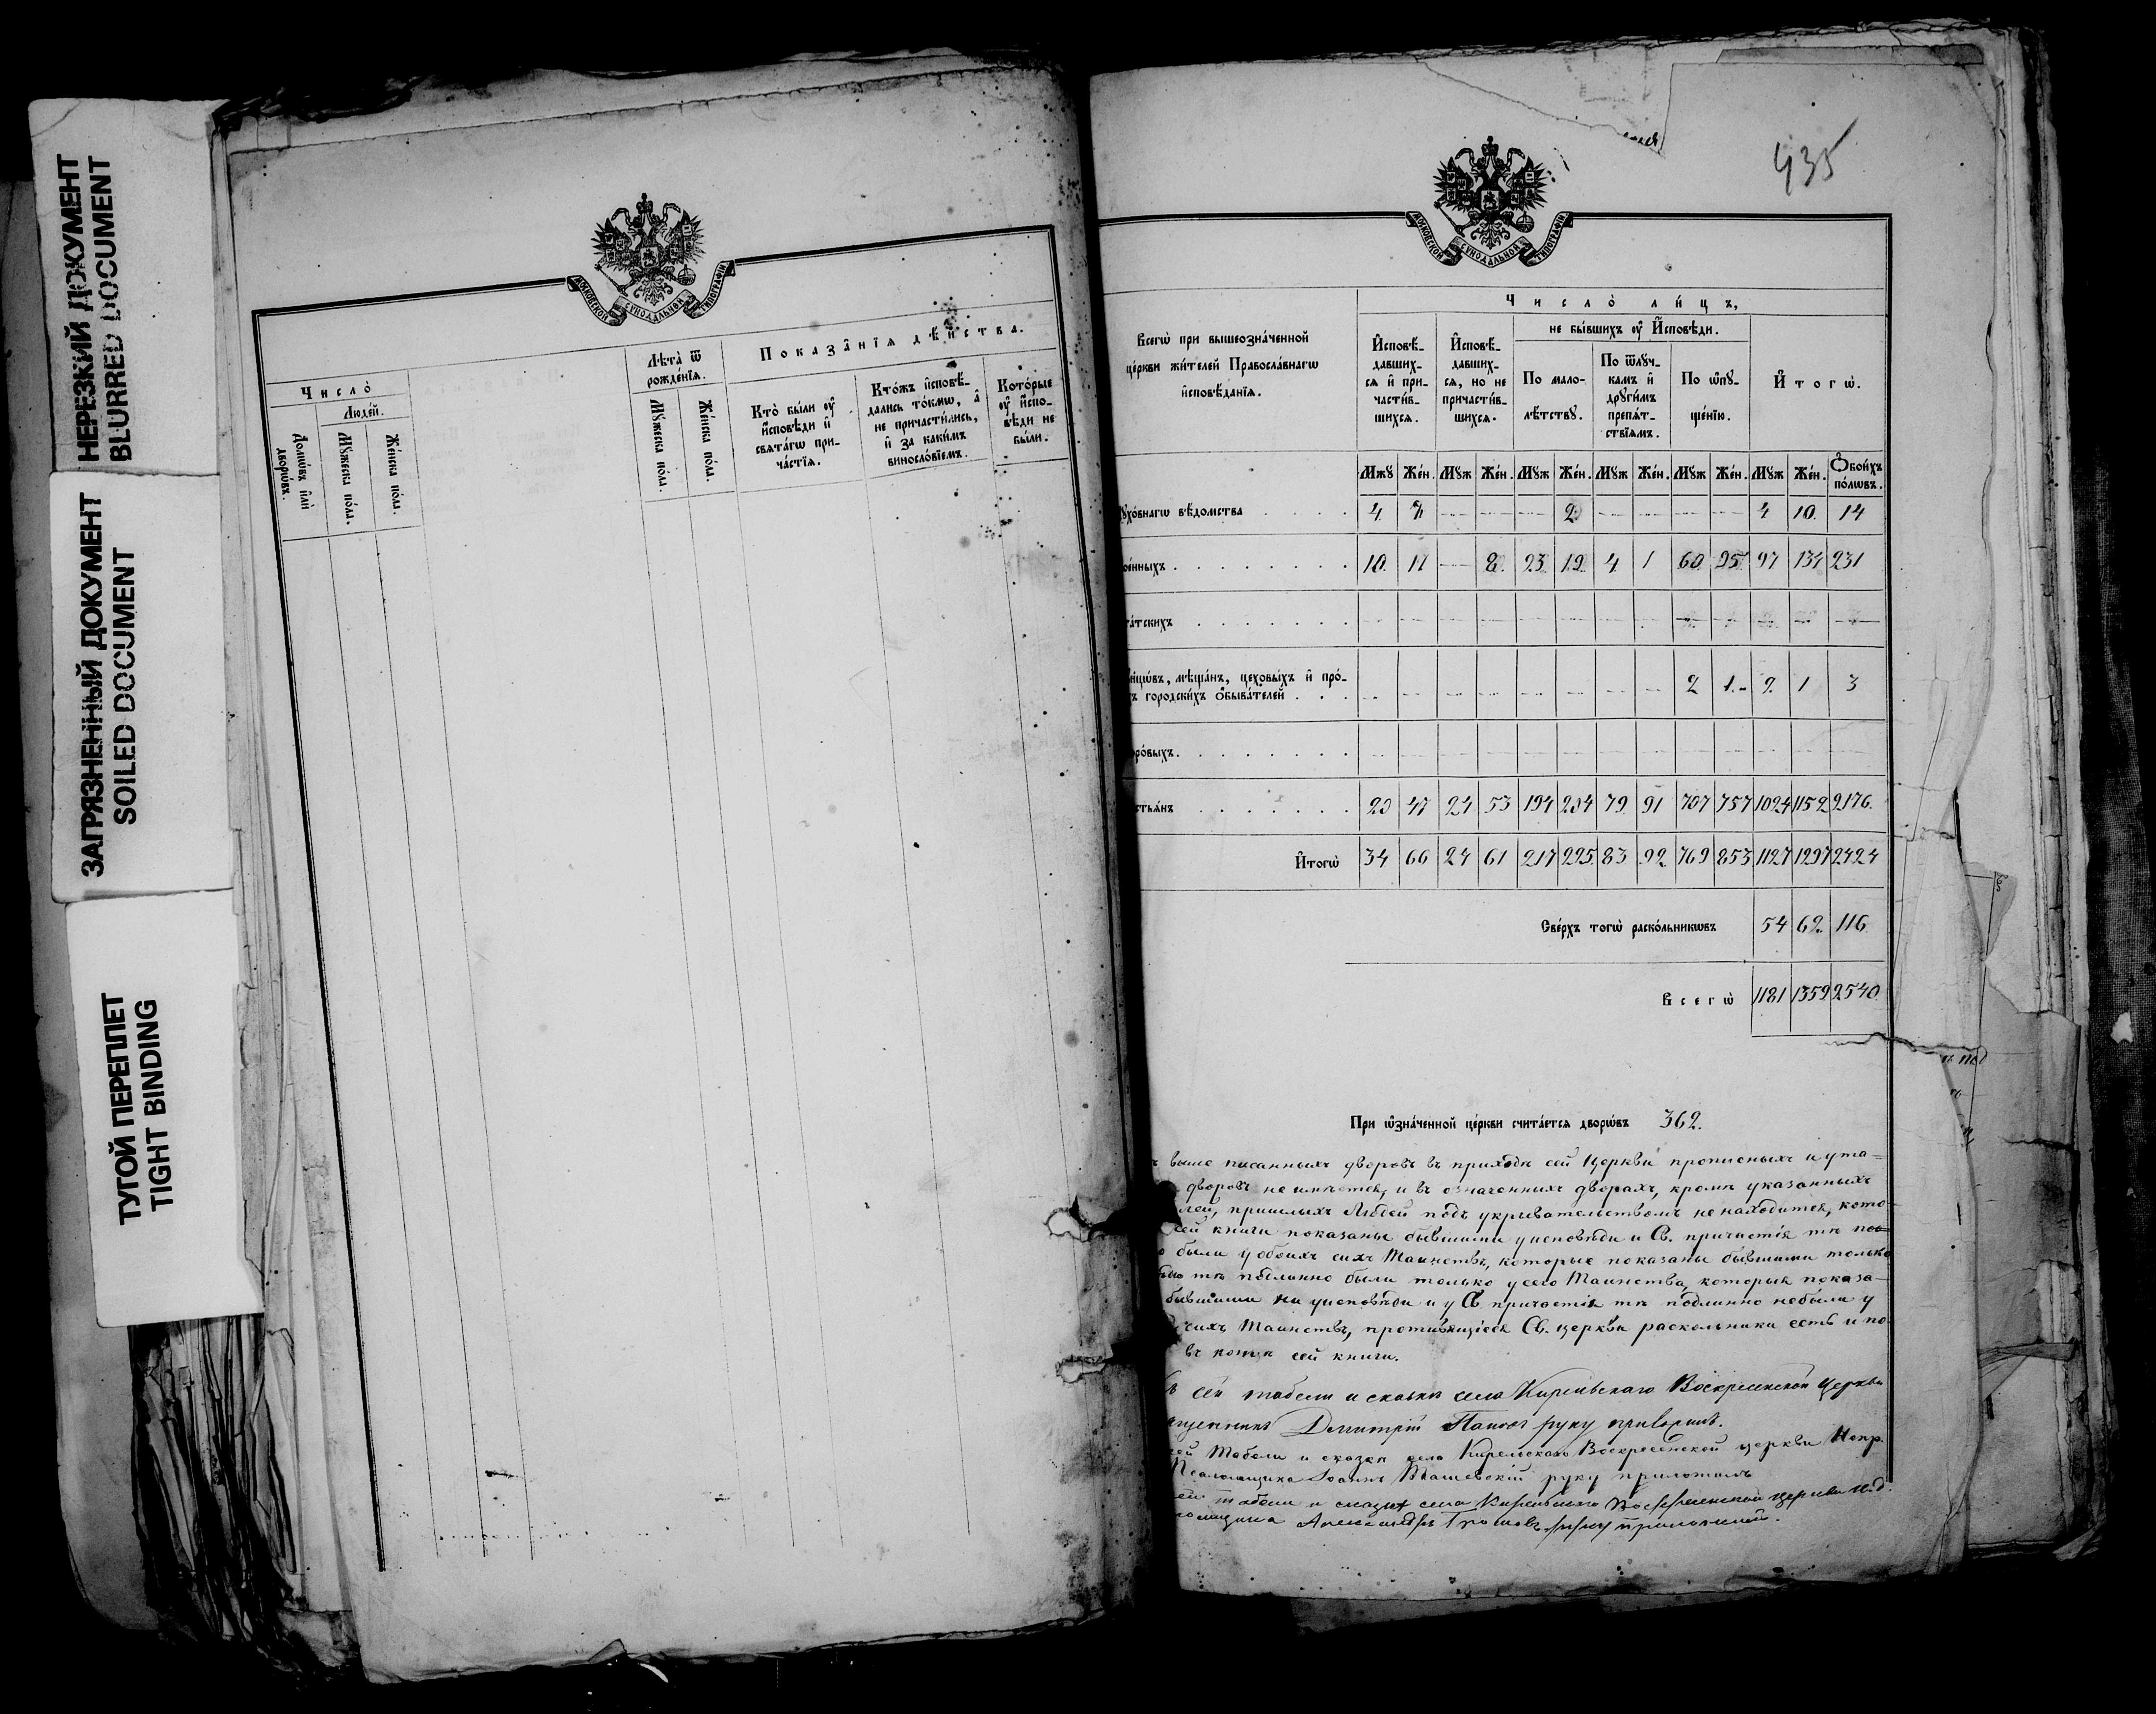 НЕРЕЗКИЙ ДОКУМЕНТ
BLURRED DOCUMENT
ЗАГРЯЗНЕННЫЙ ДОКУМЕНТ
SOILED DOCUMENT
ТУГОЙ ПЕРЕПЛЕТ
TIGHT BINDING
МОСКОВСКОЙ СѴНОДАЛЬНОЙ ТИПОГРАФІИ
Число̀
Людей.
Домѡ́въ и҆лѝ дворѡ́въ.
Мꙋ́жеска по́ла.
Же́нска по́ла.
Лѣта̀ ѿ рожде́нїѧ.
Мꙋ́жеска по́ла.
Же́нска по́ла.
Показа̑нїѧ дѣ́йства.
Кто̀ бы́ли ᲂу҆ и҆́сповѣди и҆ свѧта́гѡ прича́стїѧ.
Кто́жъ и҆сповѣ́дались то́кмѡ, а҆ не причасти́лись, и҆ за каки́мъ виносло́вїемъ.
Кото́рые ᲂу҆ и҆́сповѣди не бы́ли.
435
МОСКОВСКОЙ СѴНОДАЛЬНОЙ ТИПОГРАФІИ
Всегѡ̀ при вышеозна́ченной
це́ркви жи́телей Правосла́внагѡ
и҆сповѣ́данїѧ.
Число̀ ли́цъ,
И҆сповѣ́давшихсѧ и҆ причасти́вшихсѧ.
И҆сповѣ́давшихсѧ, но не причасти́вшихсѧ.
не бы́вшихъ ᲂу҆ И҆́сповѣди.
По малолѣ́тствꙋ.
По ѿлꙋ́чкамъ и҆ дрꙋги́мъ препѧ́тствїѧмъ.
По ѡ҆пꙋще́нїю.
И҆тогѡ̀.
Мжꙋ Же́н. Мꙋж Же́н. Мꙋж Же́н. Мꙋж Же́н. Мꙋж Же́н. Мꙋж Же́н. Ѻ҆бои́хъ по́лѡвъ.
ꙋхо́внагѡ вѣ́домства 4 2 4 10 14
ое́нныхъ 10 11 8 23 19 4 1 60 95 97 134 231
та́тскихъ
мѣща́нъ, цеховы́хъ и҆ про́-
городски́хъ ѡ҆быва́телей 2 1 2 1 3
ро́выхъ
стьѧ́нъ 20 47 24 53 194 204 79 91 707 757 1024 1152 2176
И҆тогѡ̀ 34 66 24 61 217 225 83 92 769 853 1127 1297 2424
Све́рхъ тогѡ̀ раско́льникѡвъ 54 62 116
Всегѡ̀ 1181 1359 2540
При ѡ҆зна́ченной це́ркви счита́етсѧ дворѡ́въ 362.
выше писанныхъ дворовъ въ приходѣ сей церкви прописныхъ и ута-
дворовъ не имѣется, и въ означенныхъ дворахъ, кромѣ указанныхъ
лей, пришлыхъ людей подъ укрывательствомъ не находится, кото-
сей книги показаны бывшими у исповѣди и Св. причастія тѣ
были у обоихъ сихъ Таинствъ, которые показаны бывшими только
тѣ подлинно были только у сего Таинства, которыя показа-
бывшими у исповѣди и у Св. причастія тѣ подлинно небыли у
сихъ Таинствъ, противящіеся Св. церкви раскольники есть и по
въ концѣ сей книги.
сей табели и сказкѣ села Воскресенской церкви
Димитрій руку приложилъ.
сей Табели и сказкѣ села Воскресенской церкви
Псаломщика Іоаннъ руку приложилъ
табели и сказкѣ села Воскресенской церкви и.д.
Александръ руку приложилъ.